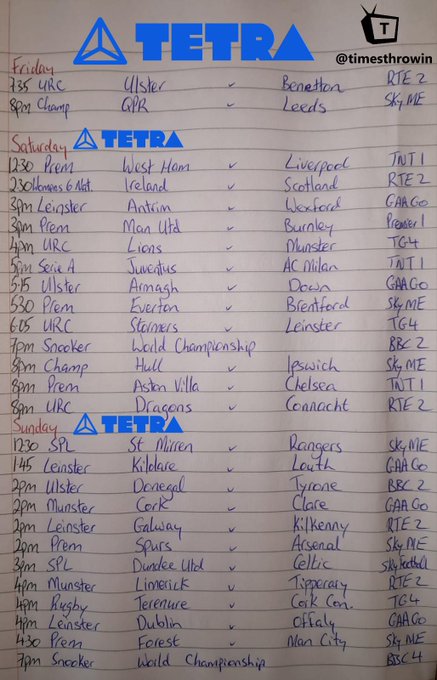 TETRA
T
@timesthrowin
Friday
7.35 URC Ulster v Benetton RTE 2
8pm Champ QPR v Leeds Sky ME
Saturday TETRA
12.30 Prem West Ham v Liverpool TNT 1
2.30 Womens 6 Nat. Ireland v Scotland RTE 2
3pm Leinster Antrim v Wexford GAA Go
3pm Prem Man Utd v Burnley Premier 1
4pm URC Lions v Munster TG4
5pm Serie A Juventus v AC Milan TNT 1
5.15 Ulster Armagh v Down GAA Go
5.30 Prem Everton v Brentford Sky ME
6.05 URC Stormers v Leinster TG4
7pm Snooker World Championship BBC 2
8pm Champ Hull v Ipswich Sky ME
8pm Prem Aston Villa v Chelsea TNT 1
8pm URC Dragons v Connacht RTE 2
Sunday TETRA
12.30 SPL St Mirren v Rangers Sky ME
1.45 Leinster Kildare v Louth GAA Go
2pm Ulster Donegal v Tyrone BBC 2
2pm Munster Cork v Clare GAA Go
2pm Leinster Galway v Kilkenny RTE 2
2pm Prem Spurs v Arsenal Sky ME
3pm SPL Dundee Utd v Celtic Sky Football
4pm Munster Limerick v Tipperary RTE 2
4pm Rugby Terenure v Cork Con. TG4
4pm Leinster Dublin v Offaly GAA Go
4.30 Prem Forest v Man City Sky ME
7pm Snooker World Championship BBC 4